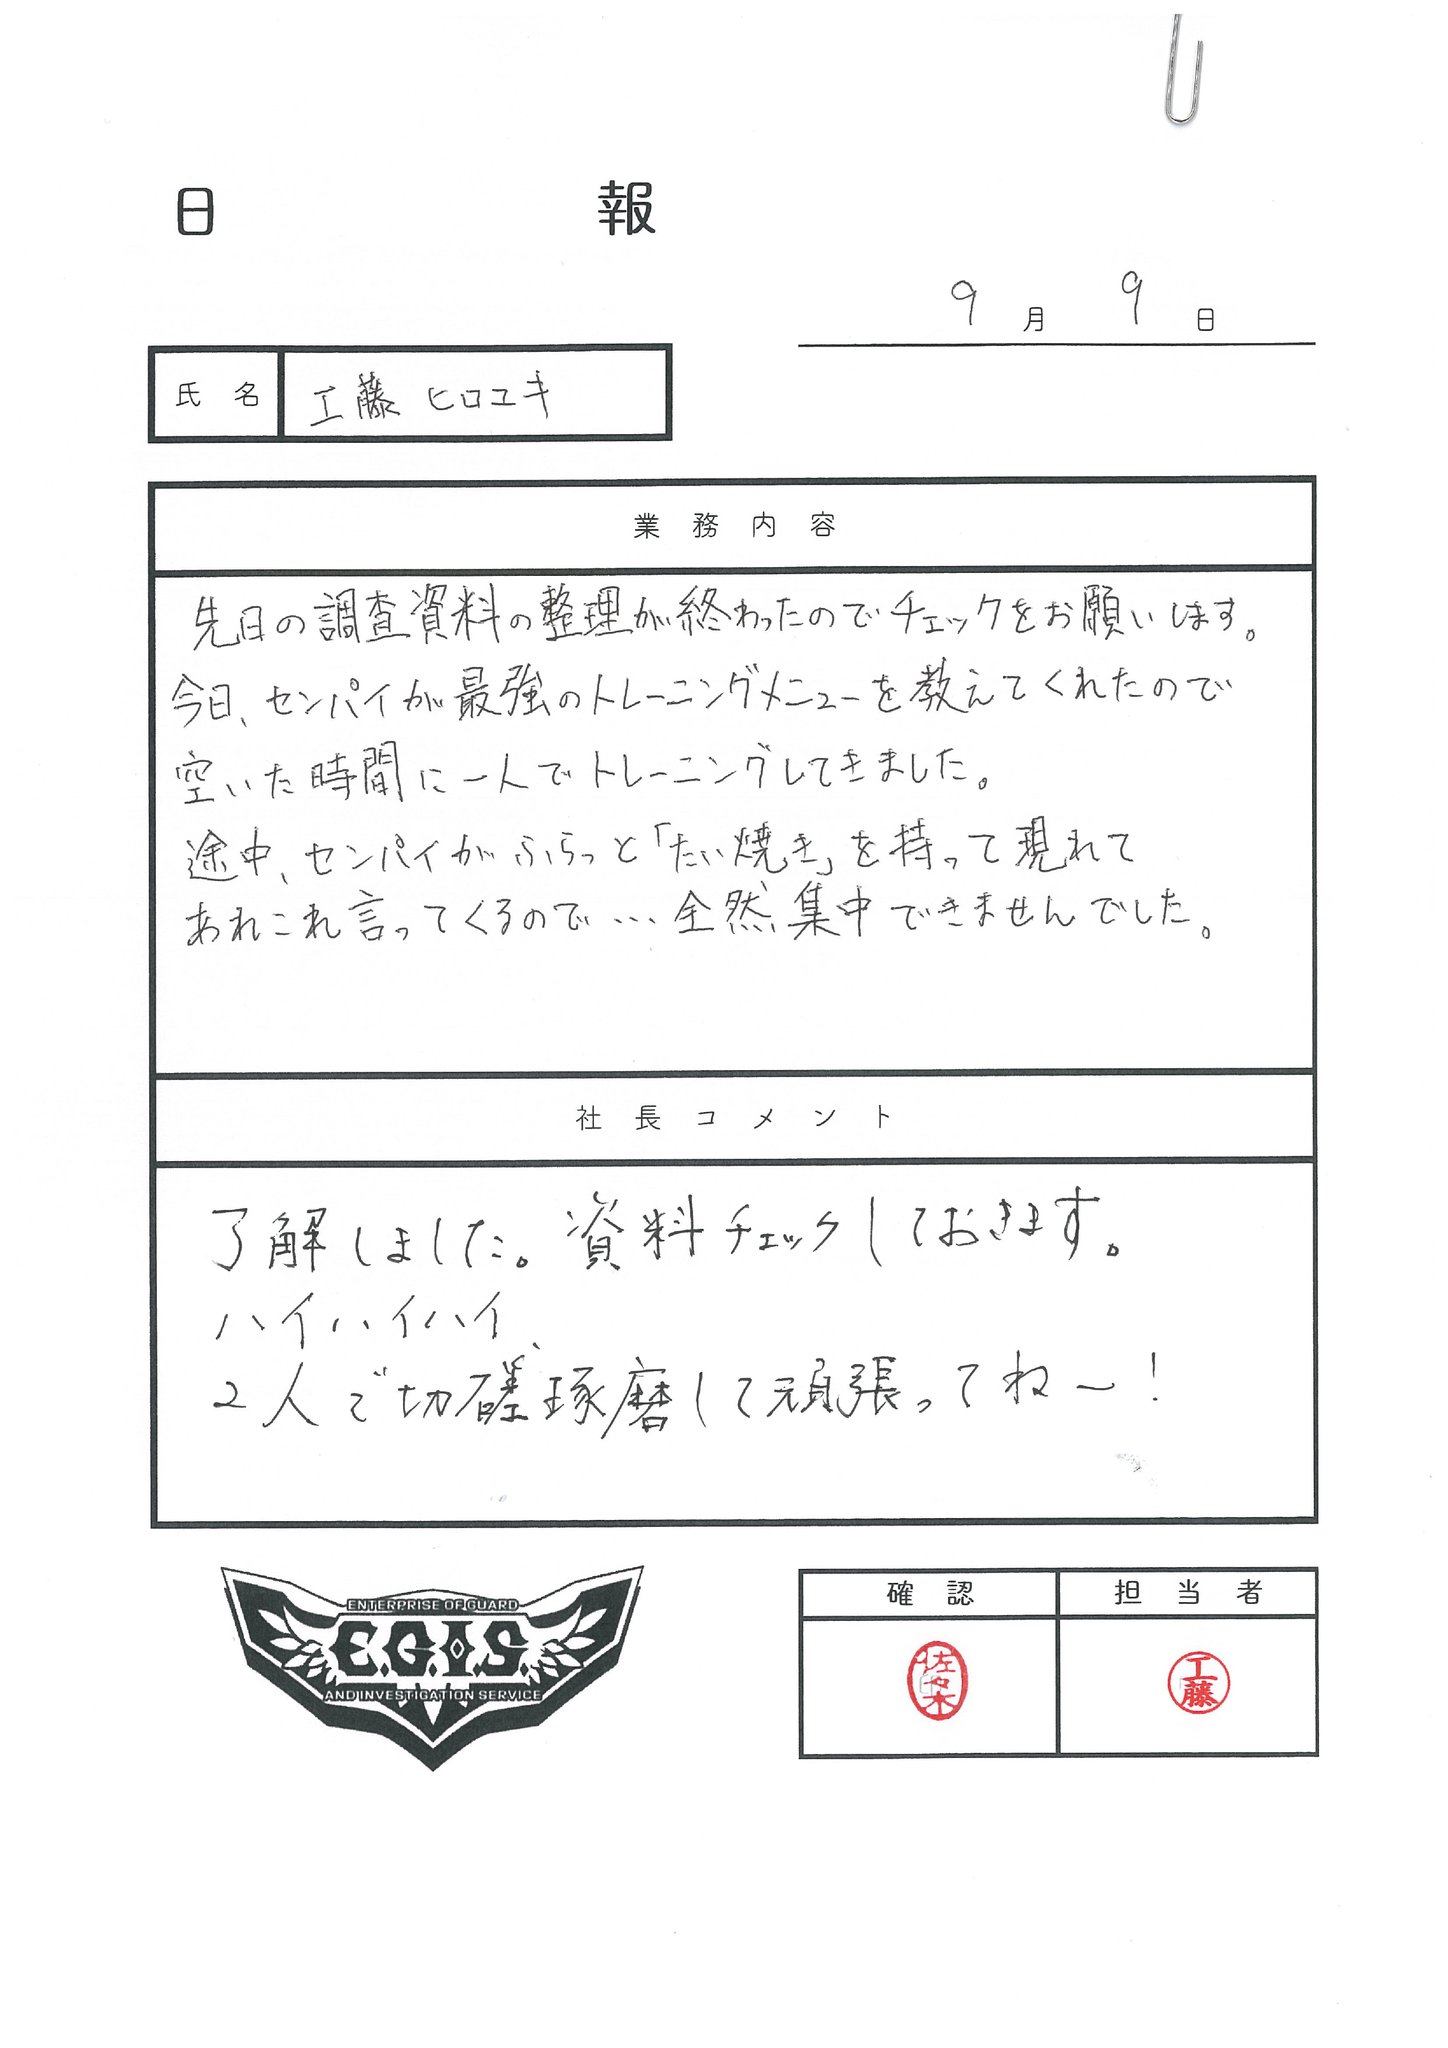 日報
9月9日
氏名 工藤 ヒロユキ
業務内容
先日の調査資料の整理が終わったのでチェックをお願いします。
今日、センパイが最強のトレーニングメニューを教えてくれたので
空いた時間に一人でトレーニングしてきました。
途中、センパイがふらっと「たい焼き」を持って現れて
あれこれ言ってくるので…全然集中できませんでした。
社長コメント
了解しました。資料チェックしておきます。
ハイハイハイ、
2人で切磋琢磨して頑張ってね〜!
ENTERPRISE OF GUARD
E.G.I.S.
AND INVESTIGATION SERVICE
確認 担当者
佐々木 工藤